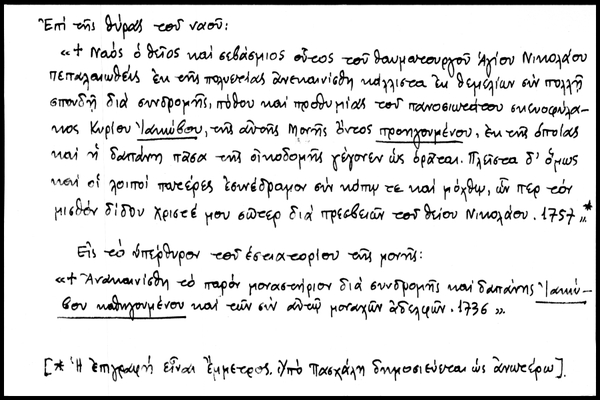 Ἐπὶ τῆς θύρας τοῦ ναοῦ:
«+ Ναὸς ὁ θεῖος καὶ σεβάσμιος οὗτος τοῦ θαυματουργοῦ Ἁγίου Νικολάου
πεπαλαιωθεὶς ἐκ τῆς πολυετίας ἀνεκαινίσθη κάλλιστα ἐκ θεμελίων σὺν πολλῇ
σπουδῇ διὰ συνδρομῆς, πόθου καὶ προθυμίας τοῦ πανοσιωτάτου σκευοφύλα-
κος Κυρίου Ἰακώβου, τῆς αὐτῆς Μονῆς ὄντος προηγουμένου, ἐκ τῆς ὁποίας
καὶ ἡ δαπάνη πᾶσα τῆς οἰκοδομῆς γέγονεν ὡς ὁρᾶται. Πλεῖστα δ' ὅμως
καὶ οἱ λοιποὶ πατέρες ἐσυνέδραμον σὺν κόπῳ τε καὶ μόχθῳ, ὧν περ τὸν
μισθὸν δίδου Χριστέ μου σῶτερ διὰ πρεσβειῶν τοῦ θείου Νικολάου. 1757».*
Εἰς τὸ ὑπέρθυρον τοῦ ἑστιατορίου τῆς μονῆς:
«+ Ἀνακαινίσθη τὸ παρὸν μοναστήριον διὰ συνδρομῆς καὶ δαπάνης Ἰακώ-
βου καθηγουμένου καὶ τῶν σὺν αὐτῷ μοναχῶν ἀδελφῶν. 1736».
[* Ἡ ἐπιγραφὴ εἶναι ἔμμετρος. Ὑπὸ Πασχάλη δημοσιεύεται ὡς ἀνωτέρω].